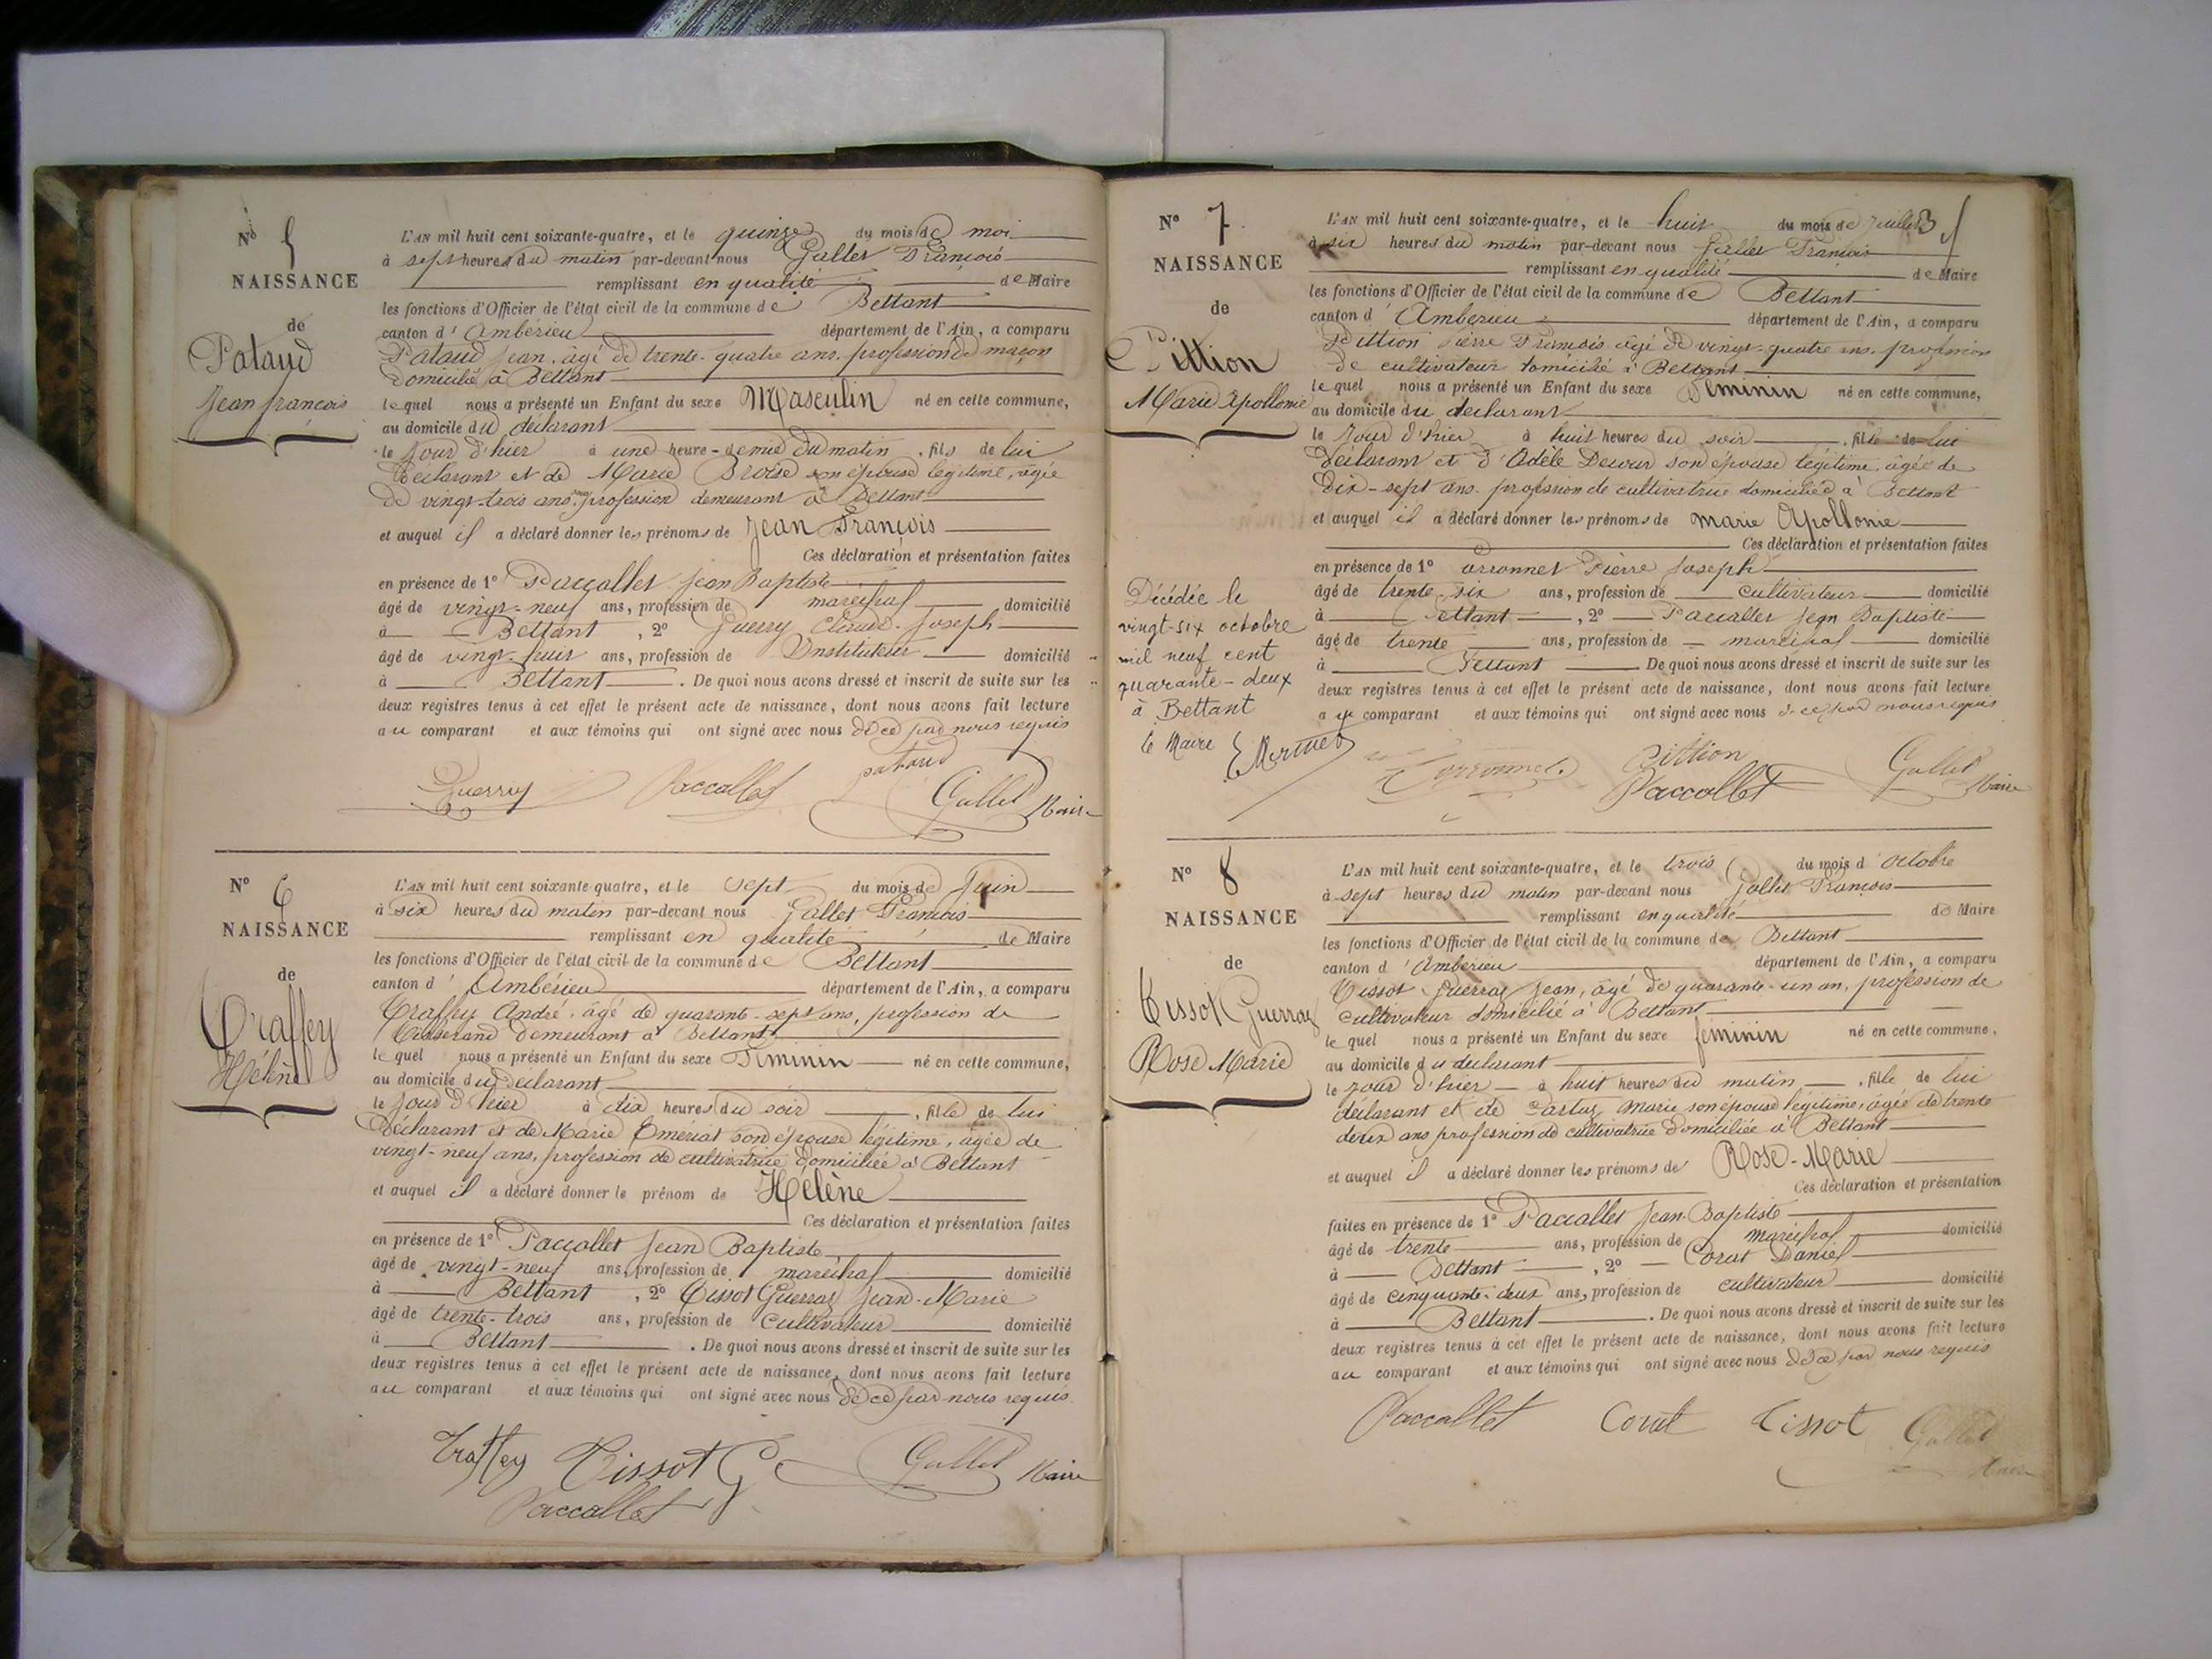 Nº 5
NAISSANCE
de
Pataud
Jean françois
L'AN mil huit cent soixante-quatre, et le quinze du mois de mai
à sept heures du matin par-devant nous Gallet François
remplissant en qualité de Maire
les fonctions d'Officier de l'état civil de la commune de Bettant
canton d' Ambérieu département de l'Ain, a comparu
Pataud Jean, âgé de trente-quatre ans, profession de maçon
domicilié à Bettant
lequel nous a présenté un Enfant du sexe Masculin né en cette commune,
au domicile du déclarant
le jour d'hier à une heure-demie du matin, fils de lui
déclarant et de Marie Broise son épouse légitime, âgée
de vingt-trois ans, sans profession demeurant à Bettant
et auquel il a déclaré donner les prénoms de Jean François
Ces déclaration et présentation faites
en présence de 1º Paccallet Jean Baptiste
âgé de vingt-neuf ans, profession de maréchal domicilié
à Bettant, 2º Guerry Claude-Joseph
âgé de vingt-huit ans, profession de Instituteur domicilié
à Bettant. De quoi nous avons dressé et inscrit de suite sur les
deux registres tenus à cet effet le présent acte de naissance, dont nous avons fait lecture
au comparant et aux témoins qui ont signé avec nous de ce par nous requis
pataud
Guerry Paccallet Gallet Maire
Nº 6
NAISSANCE
de
Traffey
Hélène
L'AN mil huit cent soixante-quatre, et le sept du mois de Juin
à six heures du matin par-devant nous Gallet François
remplissant en qualité de Maire
les fonctions d'Officier de l'état civil de la commune de Bettant
canton d' Ambérieu département de l'Ain, a comparu
Traffey André, âgé de quarante-sept ans, profession de
Tisserand demeurant à Bettant
lequel nous a présenté un Enfant du sexe Féminin né en cette commune,
au domicile du déclarant
le jour d'hier à dix heures du soir, fille de lui
Déclarant et de Marie Emériat son épouse légitime, âgée de
vingt-neuf ans, profession de cultivatrice domiciliée à Bettant
et auquel il a déclaré donner le prénom de Hélène
Ces déclaration et présentation faites
en présence de 1º Paccallet Jean Baptiste
âgé de vingt-neuf ans, profession de maréchal domicilié
à Bettant, 2º Tissot Guerraz Jean-Marie
âgé de trente-trois ans, profession de Cultivateur domicilié
à Bettant. De quoi nous avons dressé et inscrit de suite sur les
deux registres tenus à cet effet le présent acte de naissance, dont nous avons fait lecture
au comparant et aux témoins qui ont signé avec nous de ce par nous requis
Traffey Tissot G Gallet Maire
Paccallet
Nº 7
NAISSANCE
de
Pittion
Marie Apollonie
Décédée le
vingt-six octobre
mil neuf cent
quarante-deux
à Bettant
le Maire
L'AN mil huit cent soixante-quatre, et le huit du mois de Juillet
à six heures du matin par-devant nous Gallet François
remplissant en qualité de Maire
les fonctions d'Officier de l'état civil de la commune de Bettant
canton d' Ambérieu département de l'Ain, a comparu
Pittion Pierre François âgé de vingt-quatre ans, profession
de cultivateur domicilié à Bettant
lequel nous a présenté un Enfant du sexe Féminin né en cette commune,
au domicile du déclarant
le jour d'hier à huit heures du soir, fille de lui
déclarant et d'Adèle Decour son épouse légitime, âgée de
dix-sept ans, profession de cultivatrice domiciliée à Bettant
et auquel il a déclaré donner les prénoms de Marie Apollonie
Ces déclaration et présentation faites
en présence de 1º Pierre Joseph
âgé de trente six ans, profession de cultivateur domicilié
à Bettant, 2º Paccallet Jean Baptiste
âgé de trente ans, profession de maréchal domicilié
à Bettant De quoi nous avons dressé et inscrit de suite sur les
deux registres tenus à cet effet le présent acte de naissance, dont nous avons fait lecture
au comparant et aux témoins qui ont signé avec nous de ce par nous requis
Pittion Gallet Maire
Paccallet
Nº 8
NAISSANCE
de
Tissot Guerraz
Rose Marie
L'AN mil huit cent soixante-quatre, et le trois du mois d'octobre
à sept heures du matin par-devant nous Gallet François
remplissant en qualité de Maire
les fonctions d'Officier de l'état civil de la commune de Bettant
canton d' Ambérieu département de l'Ain, a comparu
Tissot Guerraz Jean, âgé de quarante-un an, profession de
cultivateur domicilié à Bettant
lequel nous a présenté un Enfant du sexe féminin né en cette commune,
au domicile du déclarant
le jour d'hier à huit heures du matin, fille de lui
déclarant et de Marie son épouse légitime, âgée de trente
deux ans profession de cultivatrice domiciliée à Bettant
et auquel il a déclaré donner les prénoms de Rose-Marie
Ces déclaration et présentation
faites en présence de 1º Paccallet Jean-Baptiste
âgé de trente ans, profession de maréchal domicilié
à Bettant, 2º Corut Daniel
âgé de cinquante-deux ans, profession de cultivateur domicilié
à Bettant. De quoi nous avons dressé et inscrit de suite sur les
deux registres tenus à cet effet le présent acte de naissance, dont nous avons fait lecture
au comparant et aux témoins qui ont signé avec nous de ce par nous requis
Paccallet Corut Tissot Gallet
Maire